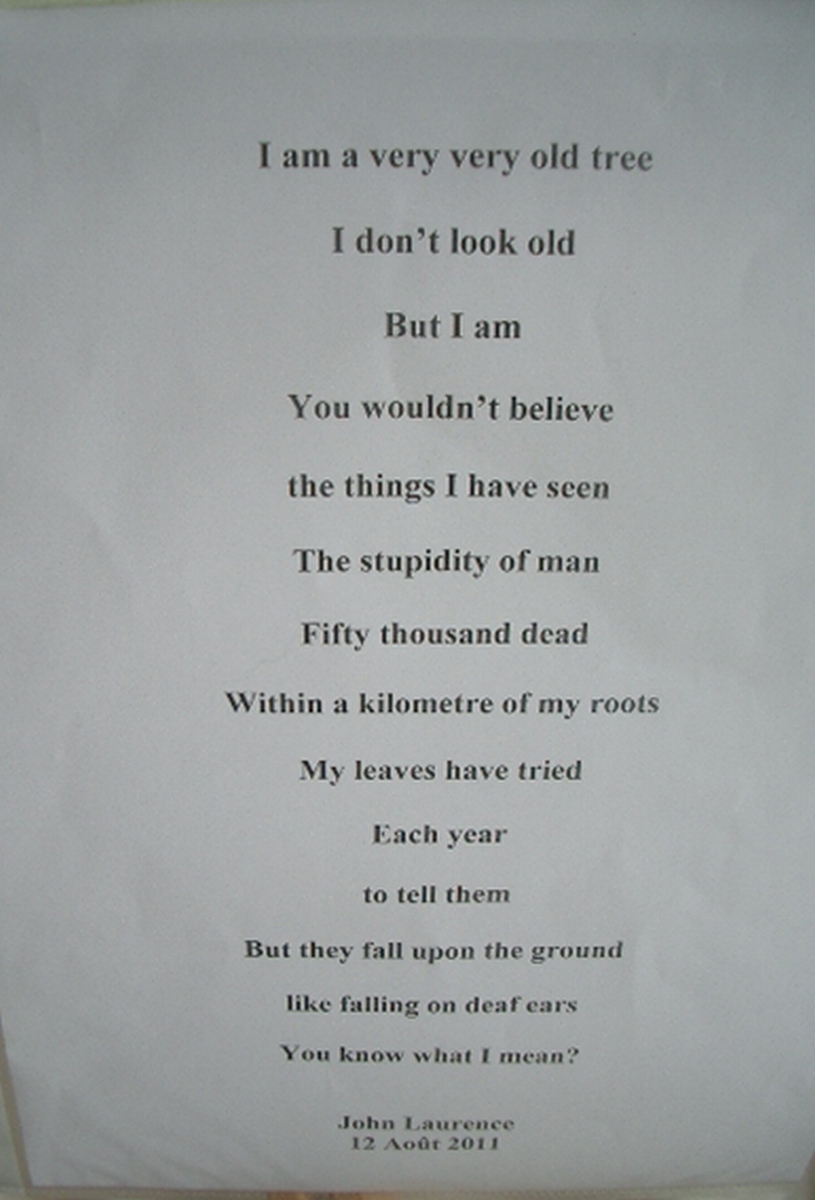 I am a very very old tree
I don't look old
But I am
You wouldn't believe
the things I have seen
The stupidity of man
Fifty thousand dead
Within a kilometre of my roots
My leaves have tried
Each year
to tell them
But they fall upon the ground
like falling on deaf ears
You know what I mean?
John Laurence
12 Août 2011